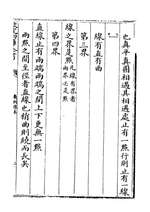 也真平真圓相遇其相遇處止有一點行則止有一線
線有直有曲
第三界
線之界是點凡線有界者兩界必是點
第四界
直線止有兩端兩端之間上下更無一點
兩點之間至徑者直線也稍曲則繞而長矣